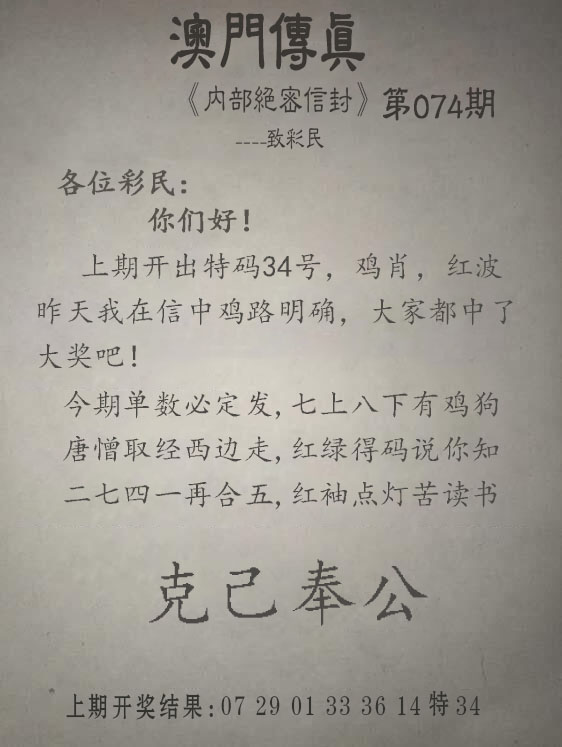 澳門傳眞
《内部絕密信封》第074期
----致彩民
各位彩民：
你们好！
上期开出特码34号，鸡肖，红波
昨天我在信中鸡路明确，大家都中了
大奖吧！
今期单数必定发,七上八下有鸡狗
唐憎取经西边走,红绿得码说你知
二七四一再合五,红袖点灯苦读书
克己奉公
上期开奖结果:07 29 01 33 36 14特34